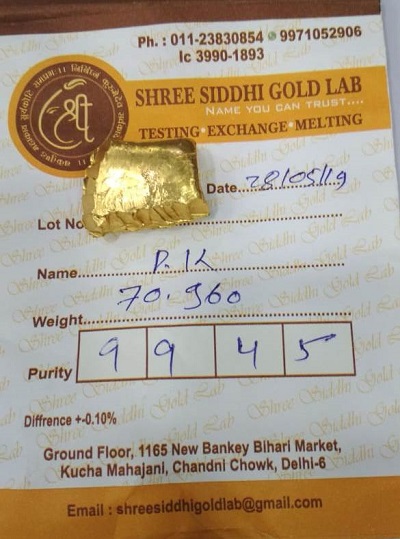 Ph. : 011-23830854 9971052906
Ic 3990-1893
श्री
SHREE SIDDHI GOLD LAB
NAME YOU CAN TRUST....
TESTING • EXCHANGE • MELTING
Date....28/05/19
Lot No
Name....P.K
Weight....70.960
Purity 9 9 4 5
Diffrence +-0.10%
Ground Floor, 1165 New Bankey Bihari Market,
Kucha Mahajani, Chandni Chowk, Delhi-6
Email : shreesiddhigoldlab@gmail.com